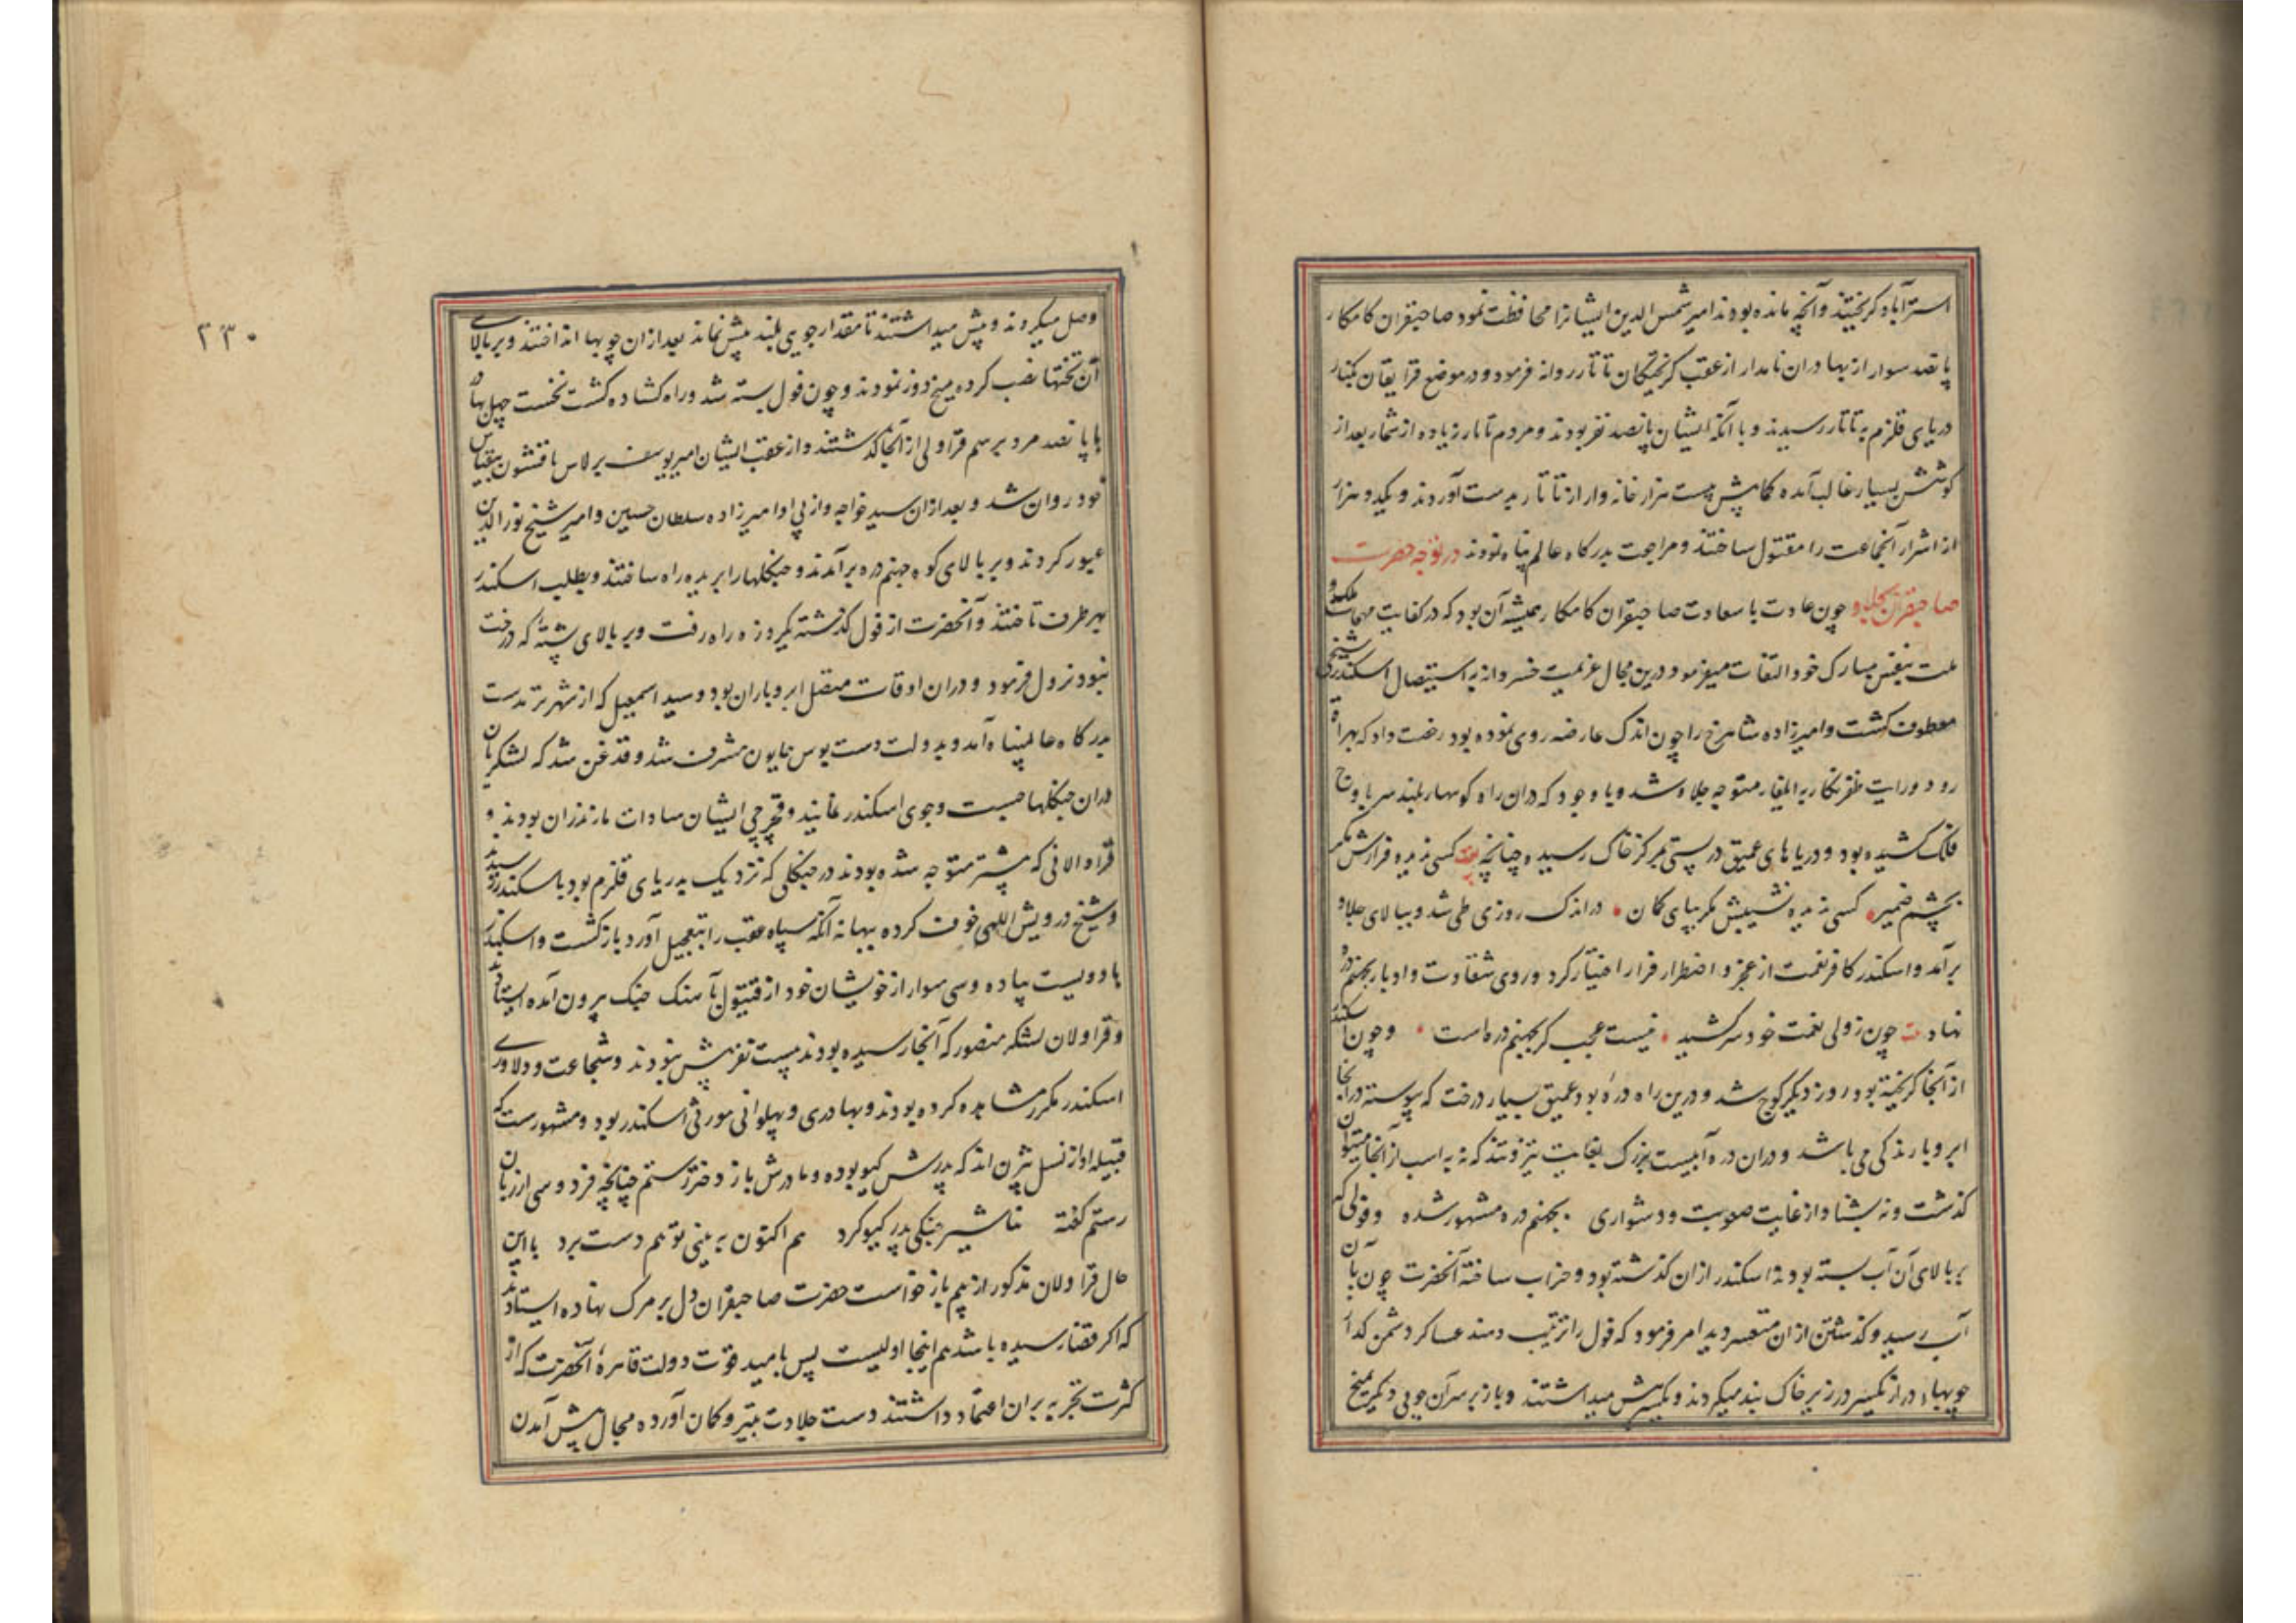 استرآباد کریختند وآنچه مانده بودند امیر شمس الدین ایشانرا محافظت نمود صاحبقران کامکار
پانصد سوار از بهادران نامدار از عقب کریختکان تاتار روانه فرمود و در موضع قرایقان بکنار
دریای قلزم به تاتار رسیدند و با آنکه ایشان پانصد نفر بودند و مردم تاتار زیاده از شمار بعد از
کوشش بسیار غالب آمده کمابیش بیست هزار خانه وار از تاتار بدست آوردند و یکدو هزار
از اشرار آنجماعت را مقتول ساختند و مراجعت بدرکاه عالم پناه نمودند در توجه حضرت
صاحبقران بجلاو چون عادت با سعادت صاحبقران کامکار همیشه آن بود که در کفایت مهمات ملک و
ملت بنفس مبارک خود التفات میفرمود درین مجال عزیمت خسروانه به استیصال اسکندر شیخی
معطوف کشت و امیرزاده شاهرخ را چون اندک عارضه روی نموده بود رخصت داد که بهراة
رود و رایت ظفرنکار به ایلغار متوجه جلاو شد و با وجود که دران راه کوهسار بلند سر باوج
فلک کشیده بود و دریاهای عمیق در پستی بمرکز خاک رسیده چنانچه بیت کسی ندیده فرازش مکر
بچشم ضمیر کسی ندیده نشیبش مکر بپای کمان در اندک روزی طی شد و ببالای جلاو
برآمد و اسکندر کافر نعمت از عجز و اضطرار فرار اختیار کرد و روی شقاوت و ادبار بجهنم دره
نهاد بیت چون ز ولی نعمت خود سر کشید نیست عجب کر بجهنم دره است وچون اسکندر
از آنجا کریخته بود روز دیکر کوچ شد و درین راه دره بود عمیق بسیار درخت که پیوسته در آنجا
ابر و بارندکی می باشد و دران دره آبیست بزرک بغایت تیز و تند که نه به اسب از آنجا میتوان
کذشت ونه بشنا و از غایت صعوبت و دشواری بجهنم دره مشهور شده و قولی که
بر بالای آن آب بسته بودند اسکندر ازان کذشته بود و خراب ساخته آنحضرت چون بآن
آب رسید و کذشتن ازان متعسر دید امر فرمود که قول را ترتیب دهند عساکر دشمن کداز
چوبهاء دراز یکسر در زیر خاک بند میکردند و یکسر پیش میداشتند و باز بر سر آن چوبی دیکر بمیخ
۲۳۰
وصل میکردند و پیش میداشتند تا مقدار جویی بلند پیش نماند بعد ازان چوبها انداختند و بر بالای
آن تختها نصب کرده میخ دوز نمودند و چون قول بسته شد و راه کشاده کشت نخست چهل بهادر
با پانصد مرد برسم قراولی از آنجا کذشتند و از عقب ایشان امیر یوسف برلاس با قشون بیقیاس
خود روان شد و بعد ازان سید خواجه و از پی او امیرزاده سلطان حسین و امیر شیخ نورالدین
عبور کردند و بر بالای کوه جهنم دره برآمدند و جنکلها را بریده راه ساختند و بطلب اسکندر
بهر طرف تاختند و آنحضرت از قول کذشته یکروزه راه رفت و بر بالای پشتهٔ که درخت
نبود نزول فرمود و دران اوقات متصل ابر و باران بود و سید اسمعیل که از شهر ترمدست
بدرکاه عالمپناه آمد و بدولت دست بوس همایون مشرف شد و قدغن شد که لشکریان
دران جنکلها جست وجوی اسکندر نمایند و قجرچی ایشان سادات مازندران بودند و
قراولانی که پیشتر متوجه شده بودند در جنکلی که نزدیک بدریای قلزم بود باسکندر رسیدند
وشیخ درویش اللهی خوف کرده ببهانه آنکه سپاه عقب را بتعجیل آورد بازکشت و اسکندر
با دویست پیاده و سی سوار از خویشان خود از قیتول بآهنک جنک بیرون آمده ایستاد
وقراولان لشکر منصور که آنجا رسیده بودند بیست نفر بیش نبودند و شجاعت و دلاوری
اسکندر مکرر مشاهده کرده بودند و بهادری و پهلوانی موروثی اسکندر بود و مشهورست که
قبیله او از نسل بیژن اند که پدرش کیو بوده و مادرش باز دختر رستم چنانچه فردوسی از زبان
رستم کفته شیر جنکی پدر کیو کرد هم اکنون به بینی تو هم دست برد با این
حال قراولان مذکور از بیم بازخواست حضرت صاحبقران دل بر مرک نهاده ایستادند
که اکر قضا رسیده باشد هم اینجا اولیست پس بامید قوت دولت قاهرهٔ آنحضرت که از
کثرت تجربه بران اعتماد داشتند دست جلادت بتیر و کمان آورده مجال پیش آمدن